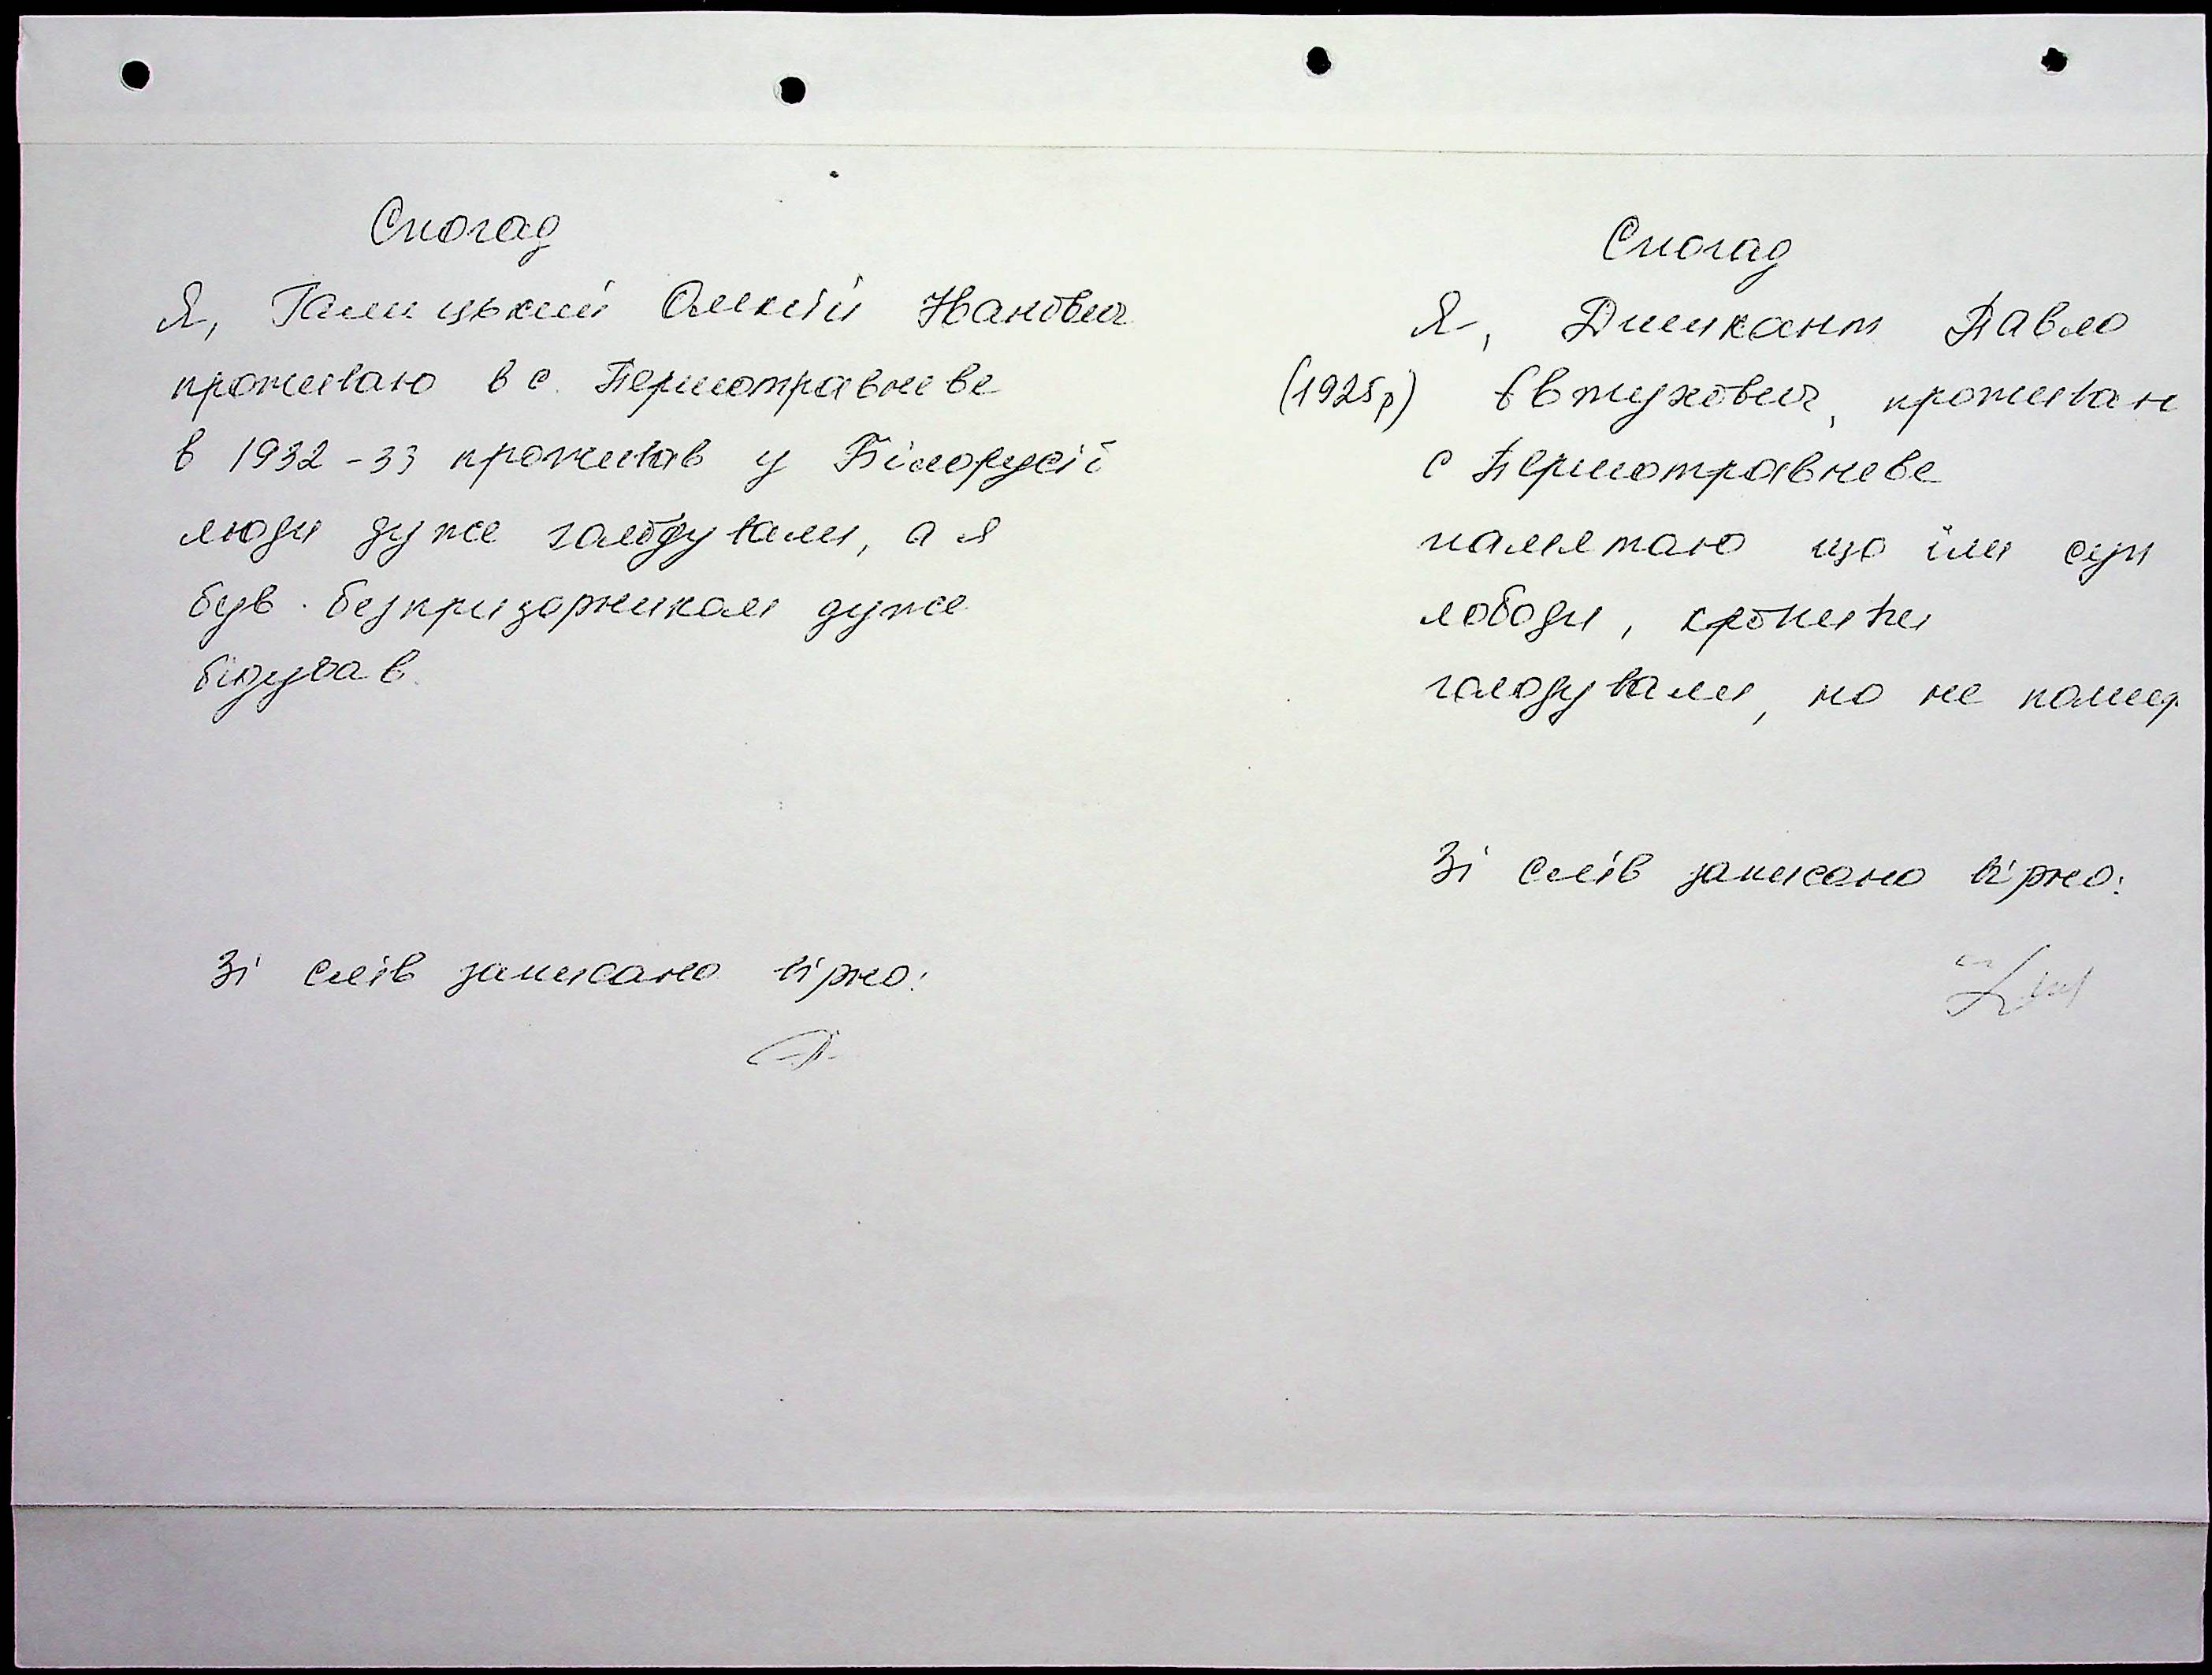 Спогад
Я, Галицький Олексій Іванович
проживаю в с. Першотравневе
в 1932-33 проживав у Білорусії
люди дуже голодували, а я
був безпризорником дуже
бідував.
Зі слів записано вірно:
Спогад
Я, Дишкант Павло
(1925р) Євтухович, прожива
с Першотравневе
памятаю що їли суп
лободи, кропиви
голодували, но не помер
Зі слів записано вірно: